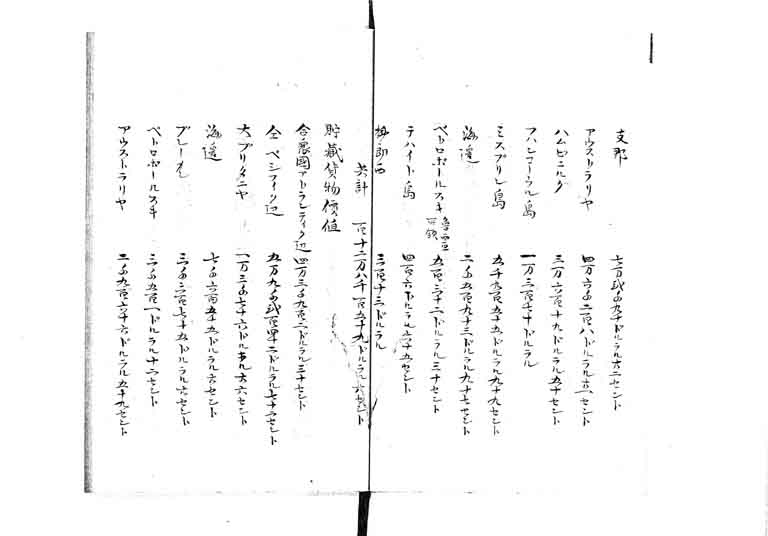 支那 七万弐千九十ドルラル六二セント
アウストラリヤ 四万六千二百八ドルラル六八セント
ハムビュルク 三万六百十九ドルラル五十セント
フハンコーラル島 一万三百七十ドルラル
ミスプリレ島 五千九百五十五ドルラル九十九セント
海邊 二千五百九十三ドルラル九十七セント
ペトロポールスキ 魯西亜 可領 五百六十二ドルラル三十セント
テハイト島 四百六ドルラル七十五セント
抹郎西 三百十三ドルラル
共計 百十二万八千百五十九ドルラル六セント
貯藏貨物價値
合衆國アトランティク辺 四万三千九百二ドルラル三十セント
仝 ペシフィック辺 五万九千弐百四十二ドルラル七十二セント
大ブリタニヤ 一万三千七十六ドルラル六六セント
海邊 七千六百五十五ドルラル六セント
ブレーメ 三千二百七十五ドルラル六セント
ペトロポールスキ 三千五百一ドルラル十二セント
アウストラリヤ 二千九百六十六ドルラル五十九セント